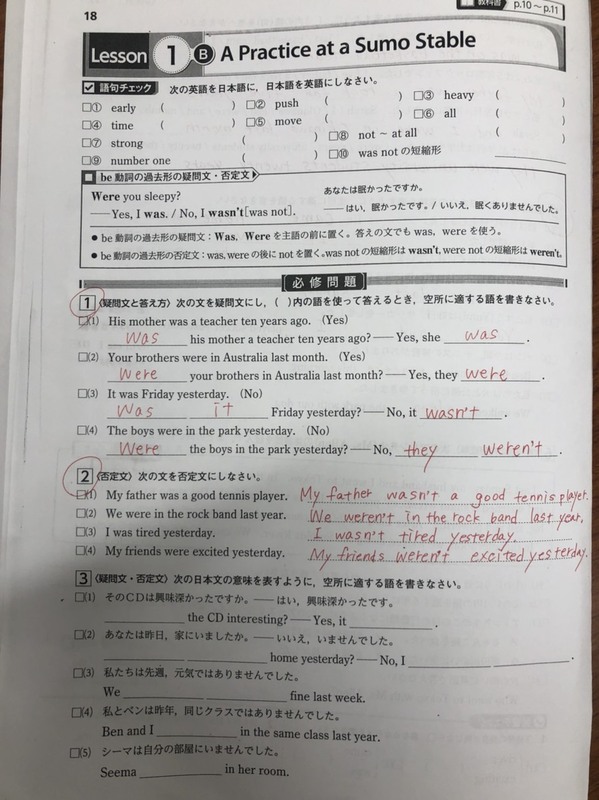 18
教科書 p.10～p.11
Lesson 1 B A Practice at a Sumo Stable
語句チェック 次の英語を日本語に，日本語を英語にしなさい。
□① early ( ) □② push ( ) □③ heavy ( )
□④ time ( ) □⑤ move ( ) □⑥ all ( )
□⑦ strong ( ) □⑧ not ～ at all ( )
□⑨ number one ( ) □⑩ was not の短縮形
be 動詞の過去形の疑問文・否定文
Were you sleepy? あなたは眠かったですか。
── Yes, I was. / No, I wasn't[was not]. ── はい，眠かったです。/ いいえ，眠くありませんでした。
● be 動詞の過去形の疑問文：Was, Were を主語の前に置く。答えの文でも was, were を使う。
● be 動詞の過去形の否定文：was, were の後に not を置く。was not の短縮形は wasn't, were not の短縮形は weren't。
必修問題
1 〈疑問文と答え方〉次の文を疑問文にし，( )内の語を使って答えるとき，空所に適する語を書きなさい。
□(1) His mother was a teacher ten years ago. (Yes)
Was his mother a teacher ten years ago? ── Yes, she was .
□(2) Your brothers were in Australia last month. (Yes)
Were your brothers in Australia last month? ── Yes, they were .
□(3) It was Friday yesterday. (No)
Was it Friday yesterday? ── No, it wasn't .
□(4) The boys were in the park yesterday. (No)
Were the boys in the park yesterday? ── No, they weren't .
2 〈否定文〉次の文を否定文にしなさい。
□(1) My father was a good tennis player. My father wasn't a good tennis player.
□(2) We were in the rock band last year. We weren't in the rock band last year.
□(3) I was tired yesterday. I wasn't tired yesterday.
□(4) My friends were excited yesterday. My friends weren't excited yesterday.
3 〈疑問文・否定文〉次の日本文の意味を表すように，空所に適する語を書きなさい。
□(1) そのCDは興味深かったですか。── はい，興味深かったです。
the CD interesting? ── Yes, it .
□(2) あなたは昨日，家にいましたか。── いいえ，いませんでした。
home yesterday? ── No, I .
□(3) 私たちは先週，元気ではありませんでした。
We fine last week.
□(4) 私とベンは昨年，同じクラスではありませんでした。
Ben and I in the same class last year.
□(5) シーマは自分の部屋にいませんでした。
Seema in her room.